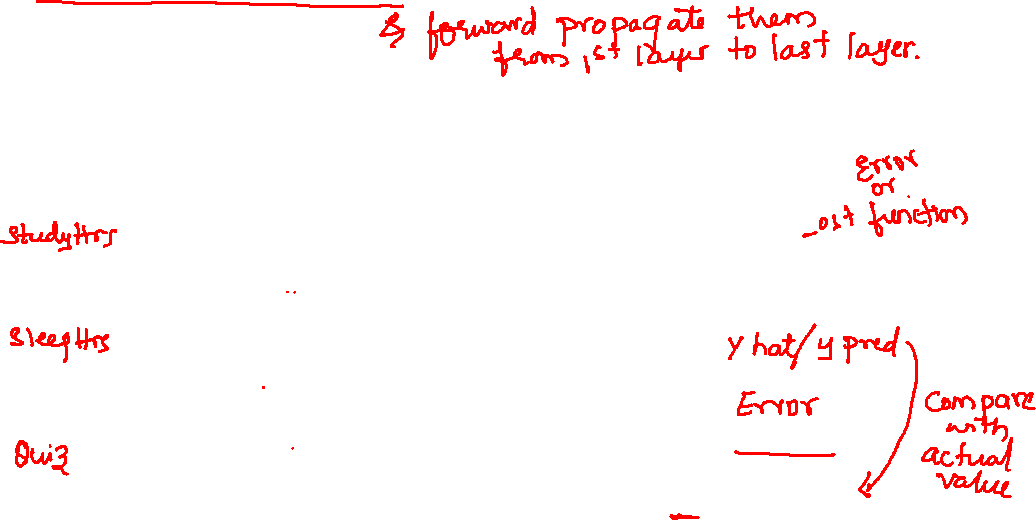 & forward propagate them
from 1st layer to last layer.
Error
or
ost function
StudyHrs
SleepHrs
y hat/y pred
Error
Compare
with
actual
value
Quiz